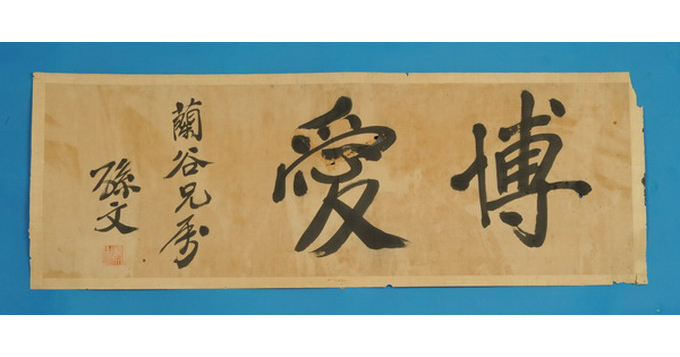 博愛
蘭谷兄属
孫文